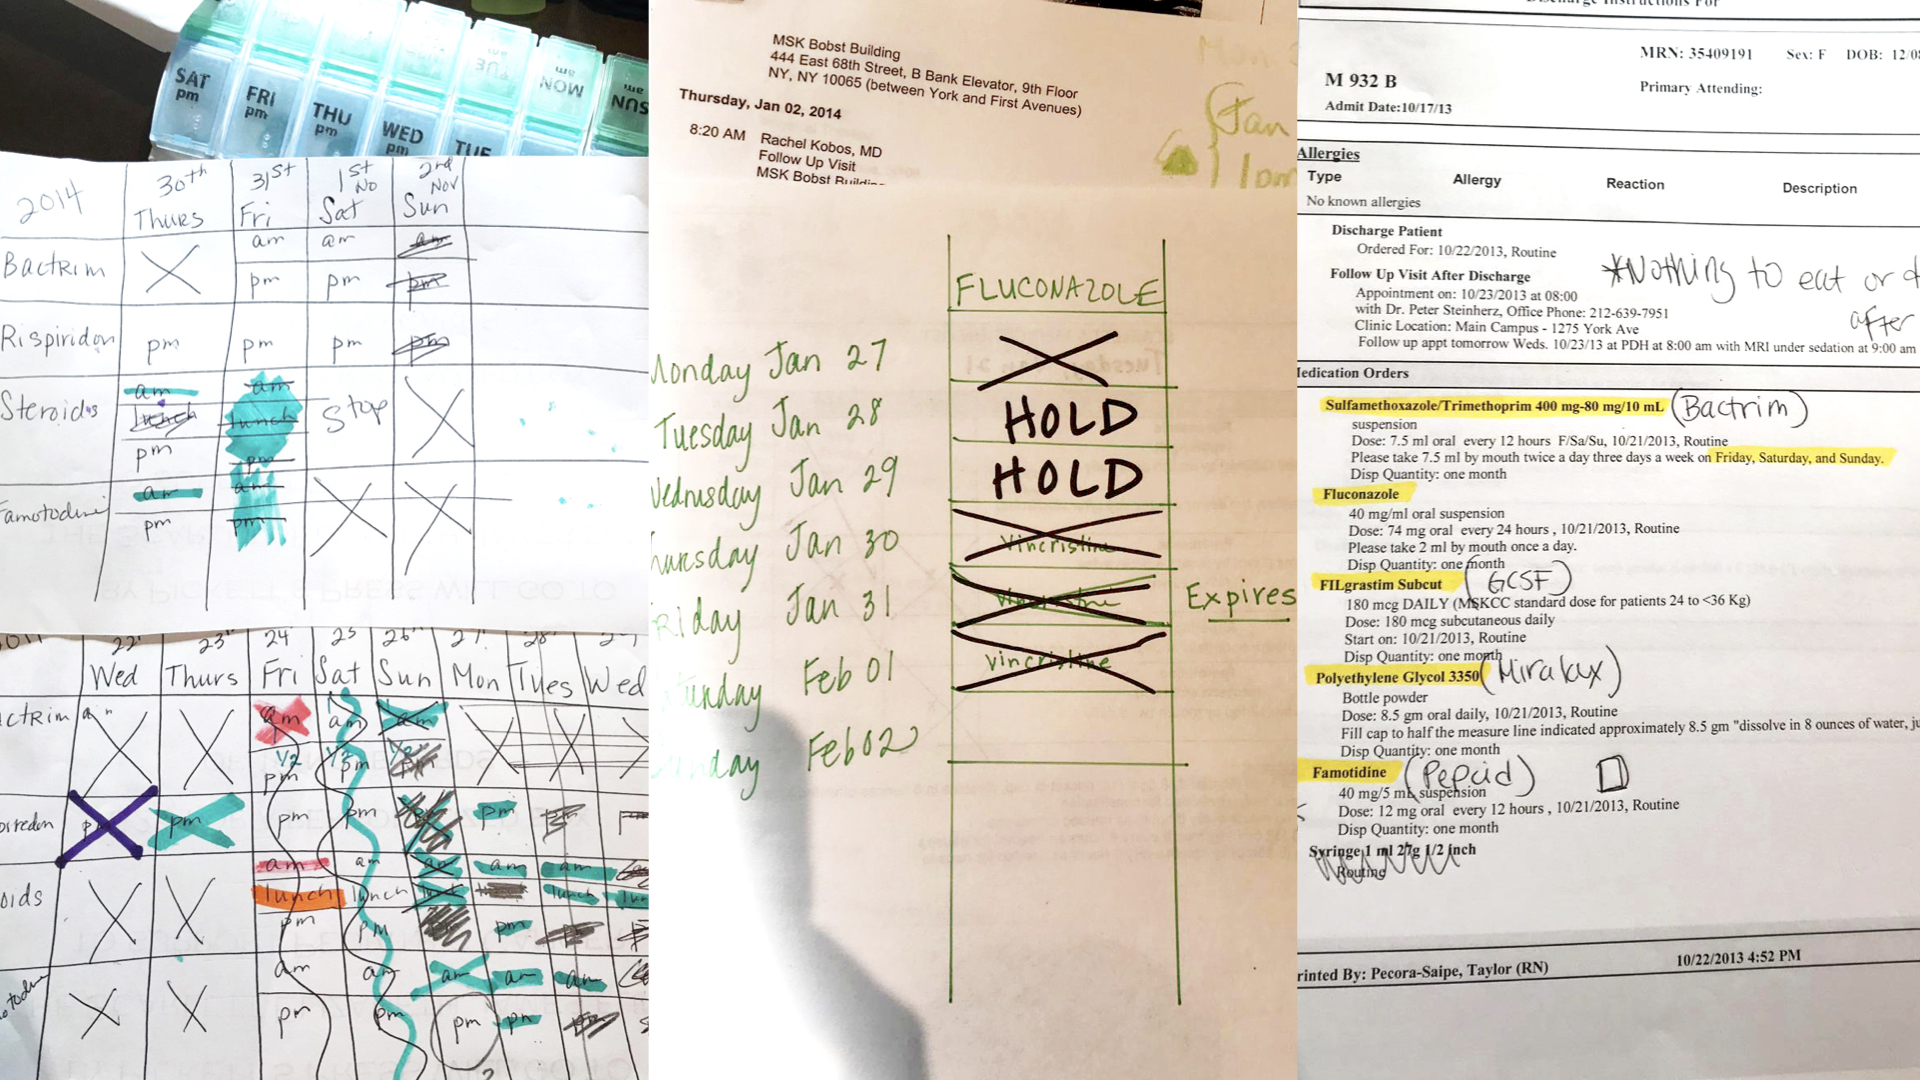 SAT
pm
FRI
pm
THU
pm
WED
pm
TUE
TUE
am
MON
am
SUN
am
2014
30th
Thurs
31st
Fri
1st
No
Sat
2nd
Nov
Sun
Bactrim
am
am
am
pm
pm
pm
Rispiridon
pm
pm
pm
pm
Steroids
am
am
Stop
lunch
lunch
pm
pm
Famotodine
am
am
pm
pm
22
23
24
25
26
27
28
Wed
Thurs
Fri
Sat
Sun
Mon
Tues
Wed
ctrim
am
am
am
1/2
1/2
pm
pm
pm
pm
pm
pm
pm
oids
am
am
am
am
am
lunch
lunch
lunch
pm
pm
pm
am
am
am
am
am
pm
pm
pm
pm
MSK Bobst Building
444 East 68th Street, B Bank Elevator, 9th Floor
NY, NY 10065 (between York and First Avenues)
Thursday, Jan 02, 2014
8:20 AM Rachel Kobos, MD
Follow Up Visit
MSK Bobst Building
Mon
Jan
FLUCONAZOLE
Monday Jan 27
Tuesday Jan 28 HOLD
Wednusday Jan 29 HOLD
hursday Jan 30 Vincristine
riday Jan 31 Vincristine Expires
turday Feb 01 Vincristine
unday Feb 02
Discharge Instructions For
MRN: 35409191 Sex: F DOB: 12/0
M 932 B
Primary Attending:
Admit Date:10/17/13
Allergies
Type Allergy Reaction Description
No known allergies
Discharge Patient
Ordered For: 10/22/2013, Routine
*Nothing to eat or d
after
Follow Up Visit After Discharge
Appointment on: 10/23/2013 at 08:00
with Dr. Peter Steinherz, Office Phone: 212-639-7951
Clinic Location: Main Campus - 1275 York Ave
Follow up appt tomorrow Weds. 10/23/13 at PDH at 8:00 am with MRI under sedation at 9:00 am
Medication Orders
Sulfamethoxazole/Trimethoprim 400 mg-80 mg/10 mL (Bactrim)
suspension
Dose: 7.5 ml oral every 12 hours F/Sa/Su, 10/21/2013, Routine
Please take 7.5 ml by mouth twice a day three days a week on Friday, Saturday, and Sunday.
Disp Quantity: one month
Fluconazole
40 mg/ml oral suspension
Dose: 74 mg oral every 24 hours , 10/21/2013, Routine
Please take 2 ml by mouth once a day.
Disp Quantity: one month
FILgrastim Subcut (GCSF)
180 mcg DAILY (MSKCC standard dose for patients 24 to <36 Kg)
Dose: 180 mcg subcutaneous daily
Start on: 10/21/2013, Routine
Disp Quantity: one month
Polyethylene Glycol 3350 (Miralax)
Bottle powder
Dose: 8.5 gm oral daily, 10/21/2013, Routine
Fill cap to half the measure line indicated approximately 8.5 gm "dissolve in 8 ounces of water, ju
Disp Quantity: one month
Famotidine (Pepcid)
40 mg/5 mL suspension
Dose: 12 mg oral every 12 hours , 10/21/2013, Routine
Disp Quantity: one month
Syringe 1 ml 27g 1/2 inch
Routine
Printed By: Pecora-Saipe, Taylor (RN) 10/22/2013 4:52 PM